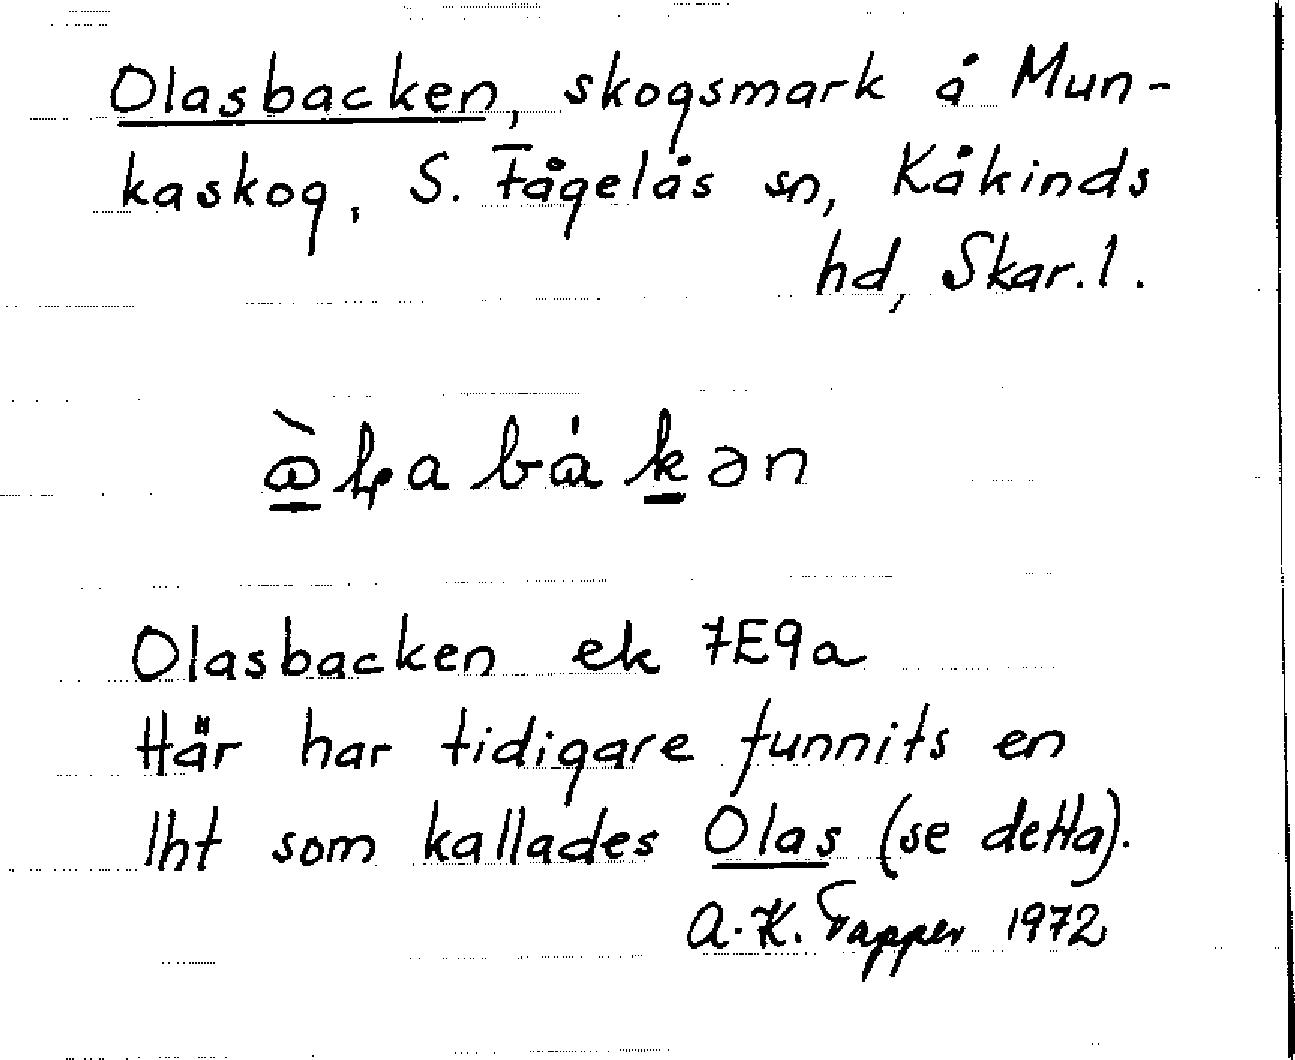 Olasbacken, skogsmark å Mun-
kaskog, S. Fågelås sn, Kåkinds
hd, Skar. l.
Olasbacken ek 7E9a
Här har tidigare funnits en
lht som kallades Olas (se detta).
A.-K. Tapper 1972